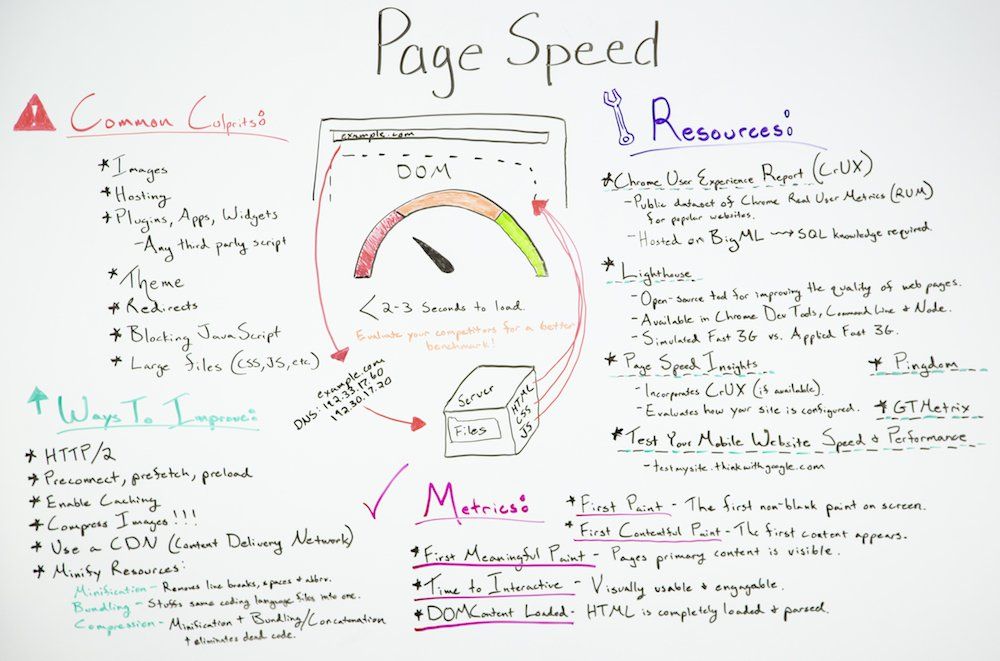 Page Speed
Common Culprits:
* Images
* Hosting
* Plugins, Apps, Widgets
- Any third party script
* Theme
* Redirects
* Blocking JavaScript
* Large files (CSS, JS, etc.)
Ways To Improve:
* HTTP/2
* Preconnect, prefetch, preload
* Enable Caching
* Compress Images!!!
* Use a CDN (Content Delivery Network)
* Minify Resources:
Minification - Removes line breaks, spaces & abbr.
Bundling - Stuffs same coding language files into one.
Compression - Minification + Bundling/Concatenation
+ eliminates dead code.
example.com
DOM
< 2-3 Seconds to load.
Evaluate your competitors for a better
benchmark!
example.com
DNS: 192.33.17.60
192.30.17.20
Server
Files
HTML
CSS
JS
Resources:
* Chrome User Experience Report (CrUX)
- Public dataset of Chrome Real User Metrics (RUM)
for popular websites.
- Hosted on BigML → SQL knowledge required.
* Lighthouse
- Open-source tool for improving the quality of web pages.
- Available in Chrome Dev Tools, Command Line & Node.
- Simulated Fast 3G vs. Applied Fast 3G.
* Page Speed Insights
- Incorporates CrUX (if available).
- Evaluates how your site is configured.
* Pingdom
* GTMetrix
* Test Your Mobile Website Speed & Performance
- testmysite.thinkwithgoogle.com
Metrics:
* First Paint - The first non-blank paint on screen.
* First Contentful Paint - The first content appears.
* First Meaningful Paint - Pages primary content is visible.
* Time to Interactive - Visually usable & engagable.
* DOMContent Loaded - HTML is completely loaded & parsed.